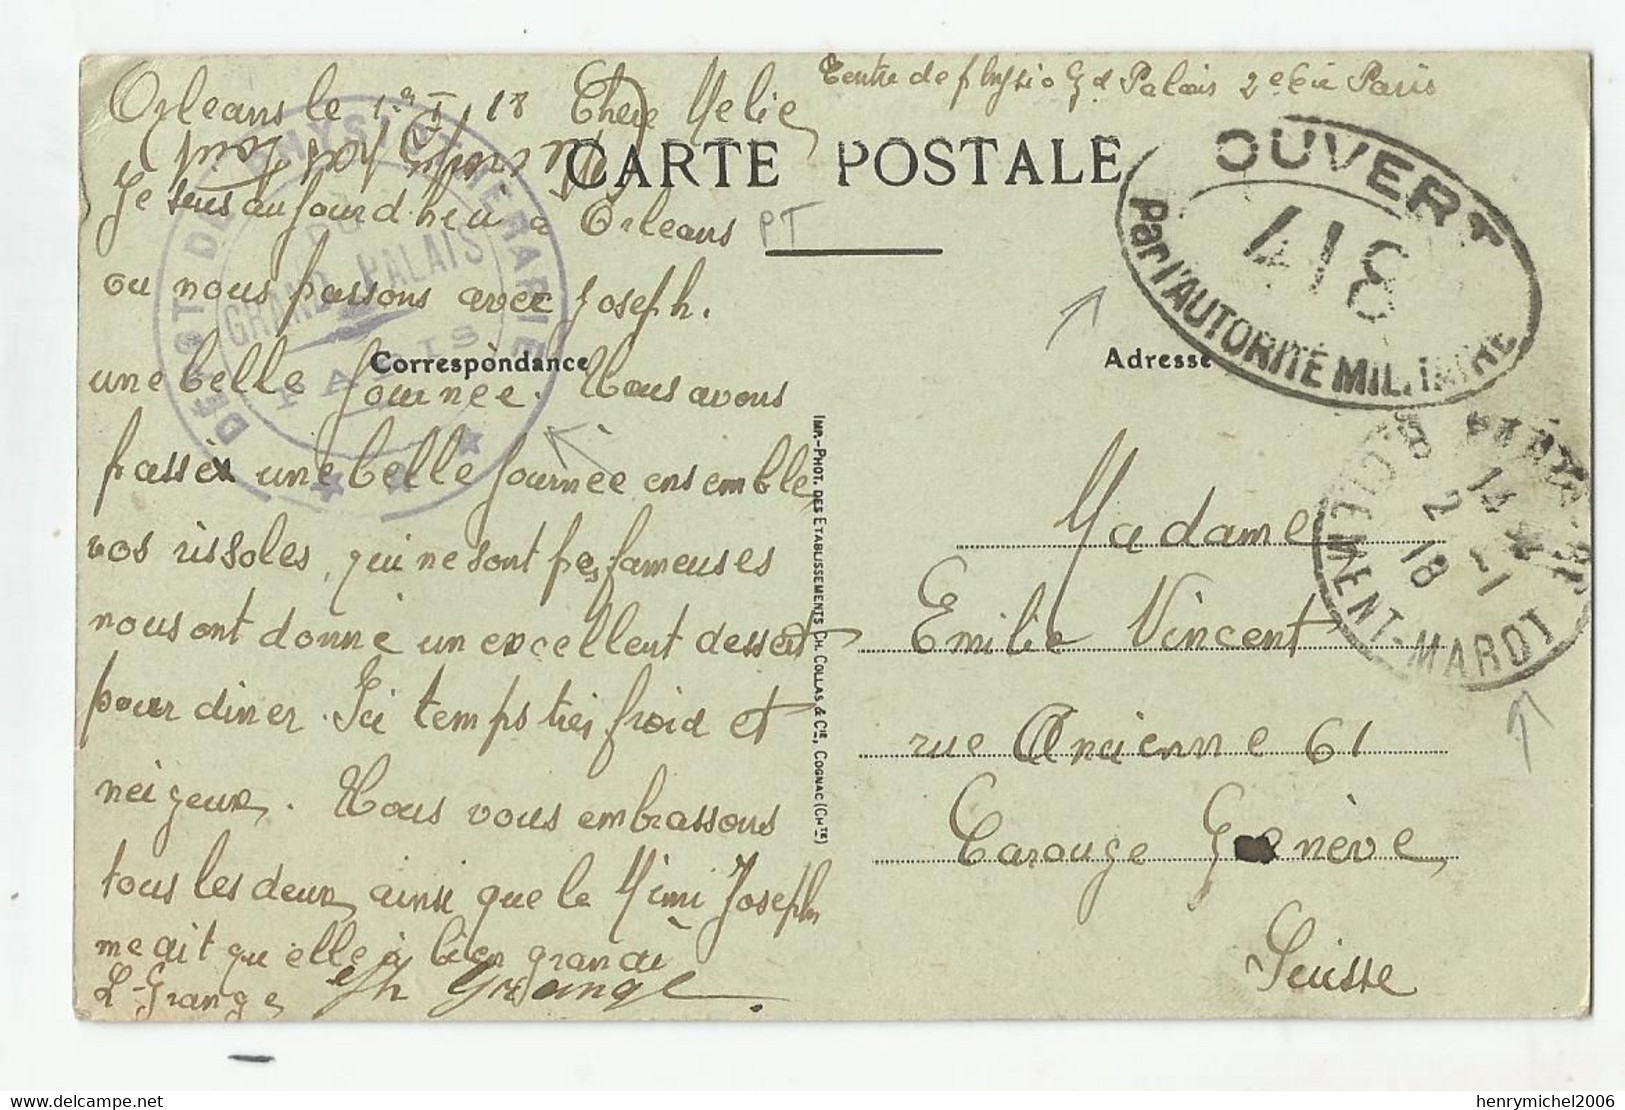 Orleans le 1er I 18 Chère Melie
Centre de Physio Gd Palais 2e Cie Paris
CARTE POSTALE
Je suis aujourd'heu à Orleans
PT
ou nous passons avec Joseph.
Correspondance
Adresse
une belle journee. Nous avons
passé une belle journèe ensemble
vos rissoles, qui ne sont pas fameuses
nous ont donné un excellent dessert
pour diner. Ici temps très froid et
neigeux. Nous vous embrassons
tous les deux ainsi que la Mimi Joseph
me dit qu'elle à bien grandi
L. Grange Jh Grange
DÉPÔT DE PHYSIOTHÉRAPIE
DU
GRAND PALAIS
PARIS
IMP.-PHOT. DES ETABLISSEMENTS CH. COLLAS & Cie, COGNAC (CHte)
OUVERT
418
Par l'AUTORITÉ MILITAIRE
PARIS
14
2 - 1
18
MENT-MAROT
Madame
Emilie Vincent
rue Ancienne 61
Carouge Genève
Suisse
henrymichel2006